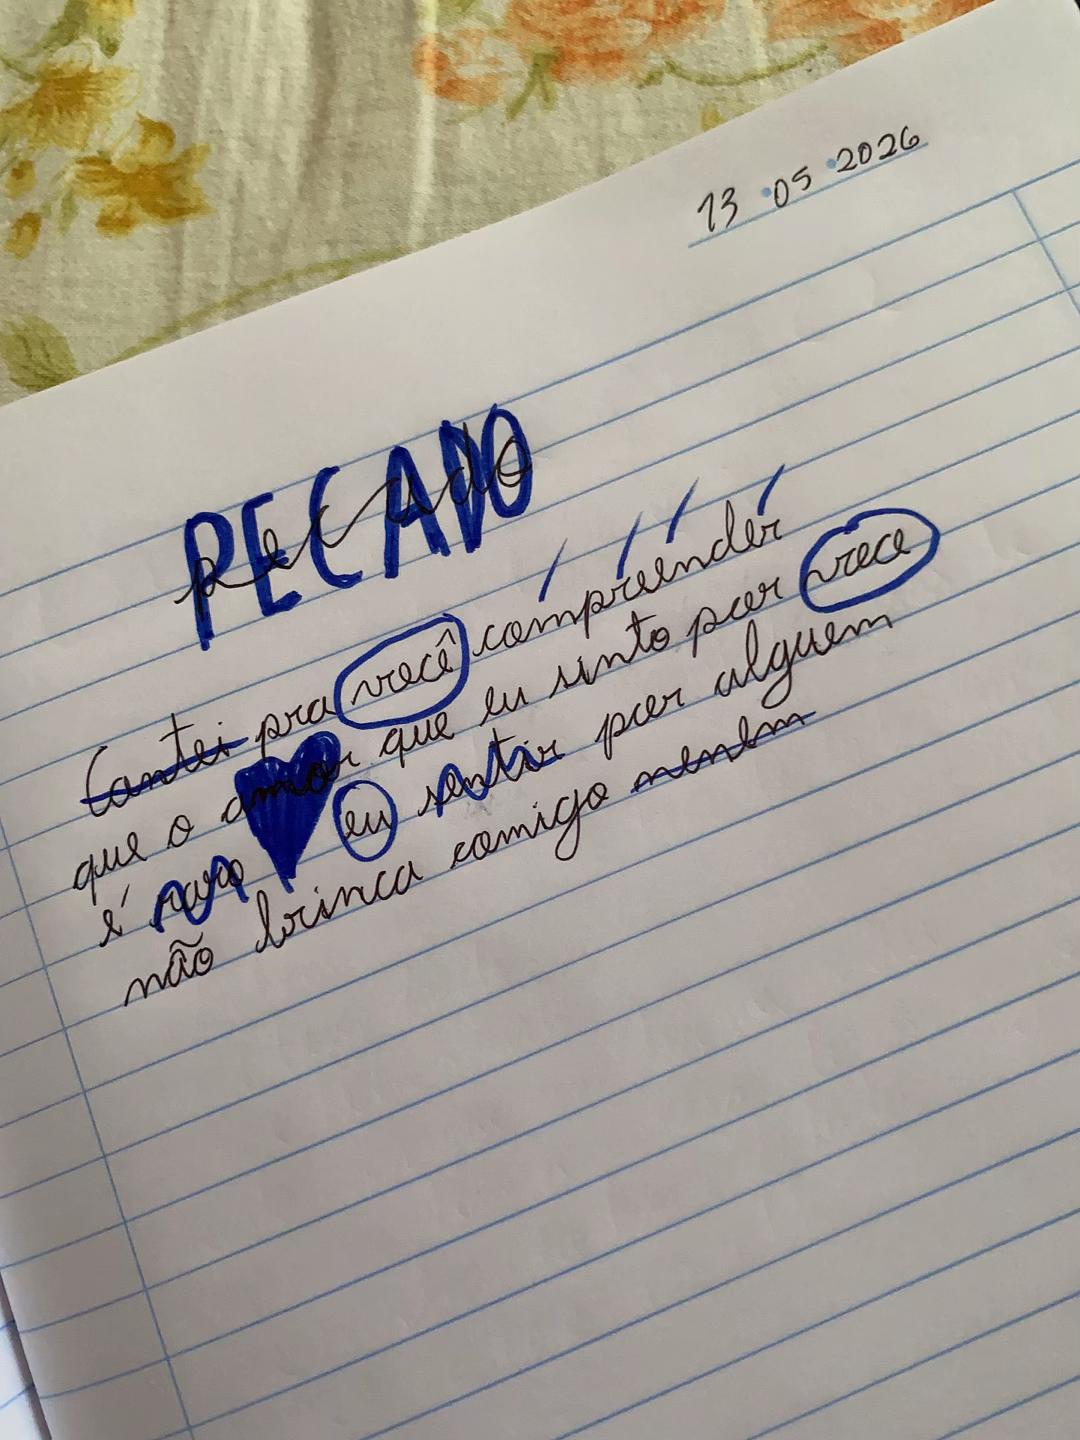 13 05 2026
PECADO
pecado
Cantei pra você compreender
que o amor que eu sinto por voce
é raro eu sentir por alguem
não brinca comigo nenem